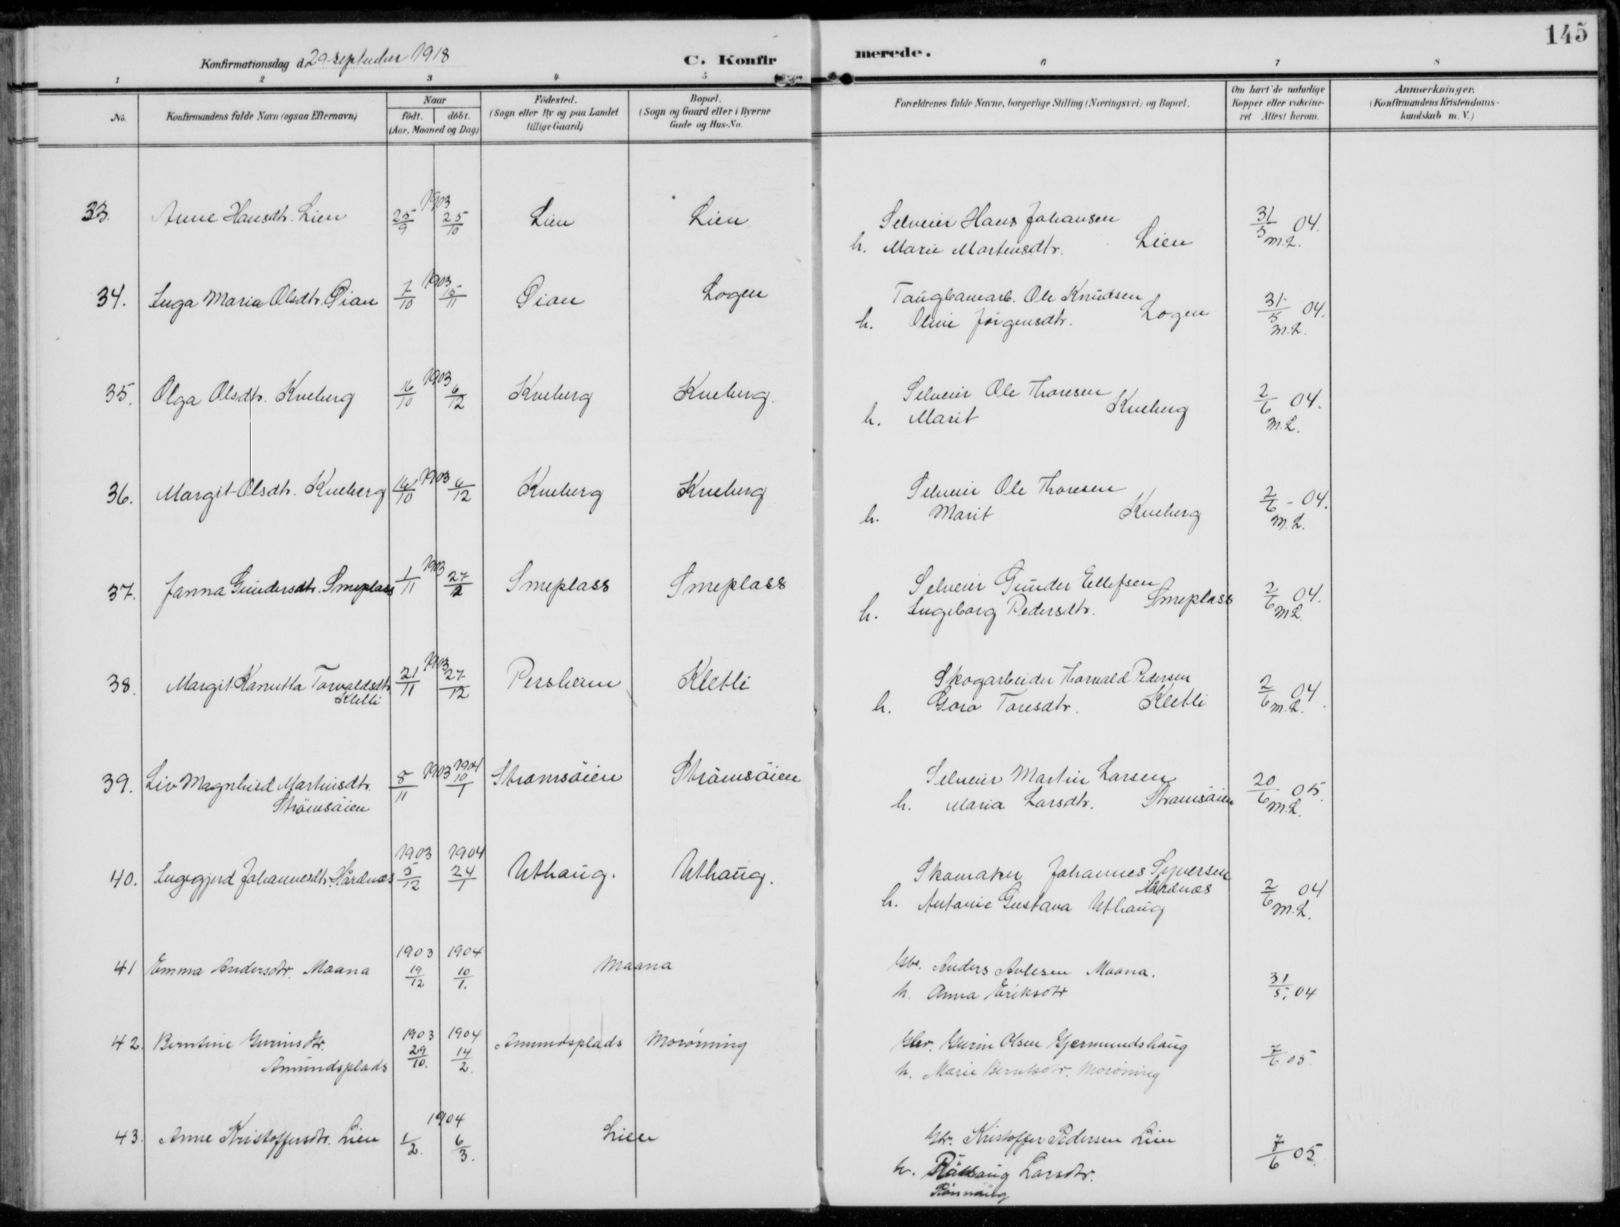 145
Konfirmationsdag d. 29. september 1918
C. Konfirmerede.
1 2 3 4 5 6 7 8
No. Konfirmandens fulde Navn (ogsaa Efternavn) Naar født. døbt. (Aar, Maaned og Dag) Fødested. (Sogn eller By og paa Landet tillige Gaard) Bopæl. (Sogn og Gaard eller i Byerne Gade og Hus-No. Forældrenes fulde Navne, borgerlige Stilling (Næringsvei) og Bopæl. Om havt de naturlige Kopper eller vaksineret Attest herom. Anmærkninger. (Konfirmandens Kristendomskundskab m. V.)
33. Anne Hansdtr. Lien 1903 25/9 25/10 Lien Lien Selveier Hans Johansen 31/5 04.
h. Marie Martensdtr. Lien M.L.
34. Inga Maria Olsdtr. Øian 7/10 1903 15/11 Øian Logen Taugbanearb. Ole Knudsen 31/5 04.
h. Oline Jørgensdtr. Logen M.L.
35. Olga Olsdtr. Kveberg 16/10 1903 6/12 Kveberg Kveberg. Selveier Ole Thoresen 2/6 04.
h. Marit Kveberg M.L.
36. Margit Olsdtr. Kveberg 16/10 1903 6/12 Kveberg Kveberg Selveier Ole Thoresen 2/6 - 04.
h. Marit Kveberg M.L.
37. Janna Gundersdtr. Smeplass 1/11 1903 27/12 Smeplass Smeplass Selveier Gunder Ellefsen 2/6 04.
h. Ingeborg Pedersdtr. Smeplass M.L.
38. Margit Kanutta Torvaldsdtr. Kletli 21/11 1903 27/12 Persheim Kletli Skogarbeider Thorvald Pedersen 2/6 04.
h. Goro Toresdtr. Kletli M.L.
39. Liv Magnhild Martinsdtr. Strömsöien 8/11 1903 1904 10/1 Strömsöien Strömsöien Selveier Martin Larsen 20/6 05.
h. Maria Larsdtr. Strömsöien M.L.
40. Ingegjerd Johannesdtr. Hardnæs 1903 5/12 1904 24/1 Uthaug. Uthaug. Skomaker Johannes Syversen Hardnæs 2/6 04
h. Antonie Gustava Uthaug M.L.
41 Emma Andersdtr. Maana 1903 19/12 1904 10/1. Maana Gbr. Anders Avlesen Maana.
h. Anna Eriksdtr 31/5. 04
42. Berntine Gurinsdtr. Amundsplads 1903 29/10. 1904 14/2. Amundsplads Moröning Gbr. Gurin Olsen Gjermundshaug 7/6 05.
h. Marie Berntsdtr. Moröning
43. Anne Kristoffersdtr. Lien 1904 1/2. 6/3. Lien Gbr. Kristoffer Pedersen Lien 7/6 05.
h. Larsdtr.
Rönnaug